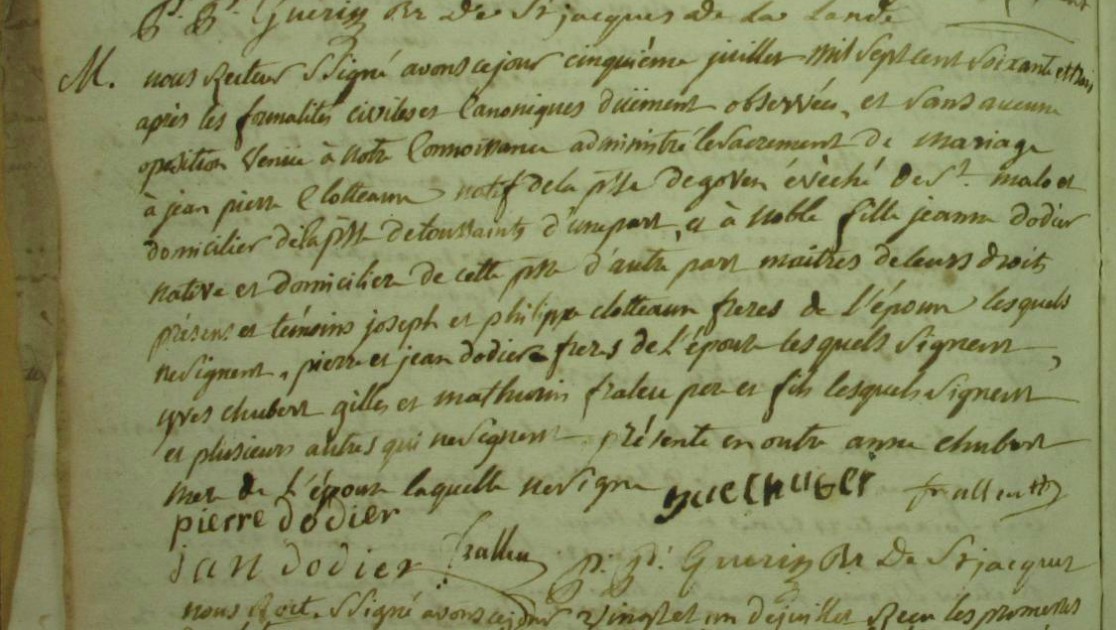 P. P. Guerin Rr De St jacques de La Lande
M. nous Recteur Ssigné avons ce jour cinquième juillet mil sept cent soixante et trois
après les formalités civiles et Canoniques düement observées, et sans aucune
opposition venüe à notre Connoissance administré le sacrement de mariage
à jean pierre Clotteaux natif de la psse de goven évèché de St. malo et
domicilier de la psse de toussaints d'une part, et à noble fille jeanne dodier
native et domiciliere de cette psse d'autre part maitres de leurs droits
présens et témoins joseph et philippe clotteaux freres de l'époux lesquels
ne signent, pierre et jean dodier freres de l'épouse lesquels signent,
yves chubert gilles et mathurin fraleu pere et fils lesquels signent
et plusieurs autres qui ne signent présente en outre anne chubert
mere de l'épouse laquelle ne signe
pierre dodier
jan dodier fralleu P. P. Guerin Rr De St jacques
nous Rect. Ssigné avons ce jour vingt et un de juillet Receu les promesses